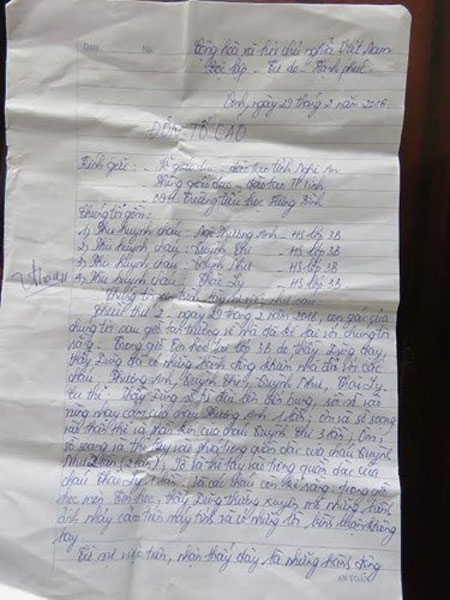 Date No.
Cộng hòa xã hội chủ nghĩa Việt Nam
Độc lập - Tự do - Hạnh phúc
Vinh, ngày 29 tháng 2 năm 2016
ĐƠN TỐ CÁO
Kính gửi: - Sở giáo dục - đào tạo tỉnh Nghệ An
Phòng giáo dục - đào tạo TP Vinh
BGH Trường tiểu học Hưng Bình
Chúng tôi gồm:
1) Phụ huynh cháu: Phương Anh - HS lớp 3B
2) Phụ huynh cháu: Quỳnh Thi - HS lớp 3B
3) Phụ huynh cháu: Quỳnh Như - HS lớp 3B
4) Phụ huynh cháu: Thảo Ly - HS lớp 3B
Chúng tôi xin trình bày như sau
Chiều thứ 2 - ngày 29 tháng 2 năm 2016, con gái của
chúng tôi sau giờ tan trường về nhà đã kể lại với chúng tôi
rằng: Trong giờ Tin học tại lớp 3B do thầy Dũng dạy,
thầy Dũng đã có những hành động khiếm nhã đối với các
cháu: Phương Anh, Quỳnh Thi, Quỳnh Như, Thảo Ly.
Cụ thể: Thầy Dũng sờ từ đầu đến bụng, sờ vào
vùng nhạy cảm của cháu Phương Anh 1 lần; Ôm và sờ soạng
vào thân thể và của cháu Quỳnh Thi 3 lần; Ôm,
sờ soạng và thò tay vào phía trong quần áo của cháu Quỳnh
Như 2 lần (2 lần); Sờ và thò tay vào trong quần áo của
cháu Thảo Ly 1 lần. Và các cháu còn kể rằng: trong giờ
học môn Tin học, thầy Dũng thường xuyên mở những hình
ảnh nhạy cảm trên máy tính và có những lời bình luận không
hay
Từ sự việc trên, nhận thấy đây là những hành động
AN TOÀN